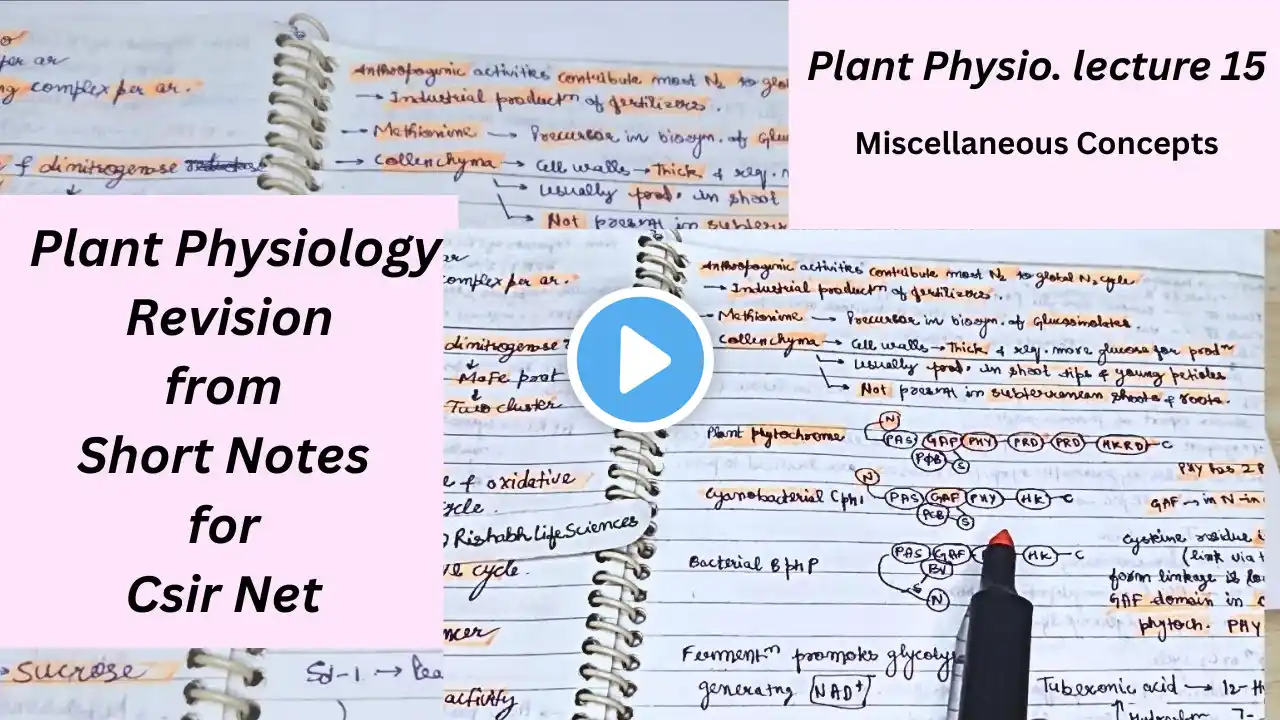 Plant Physio. lecture 15
Miscellaneous Concepts
Plant Physiology
Revision
from
Short Notes
for
Csir Net
per ar
complex per ar.
f dinitrogenase
Anthropogenic activities contribute most N2 to
→ Industrial productn of fertilizers.
→ Methionine → Precursor in biosyn. of
→ Collenchyma → Cell walls → Thick & req.
usually prod. in shoot
Not present in
complex per ar.
dinitrogenase
↓
MoFe prot
↓
Two cluster
& oxidative
cycle.
Rishabh LifeSciences
cycle.
activity
Anthropogenic activities contribute most N2 to global N2 cycle
→ Industrial productn of fertilizers.
→ Methionine → Precursor in biosyn. of Glucosinolates.
Collenchyma → Cell walls → Thick & req. more glucose for prodn
→ usually prod. in shoot tips & young petioles
→ Not present in subterranean shoots & roots.
Plant phytochrome N PAS GAF PHY PRD PRD HKRD C
PΦB S
PHY has 2 P
Cyanobacterial Cph1 N PAS GAF PHY HK C
PCB S
GAF → in N
Bacterial BphP PAS GAF HK C
BV
S
N
cysteine residue
(link via
form linkage is
GAF domain in
phytoch. PHY
Fermentn promotes
generatng NAD+
Tuberonic acid → 12-H
→ Sucrose
Sd-1 →